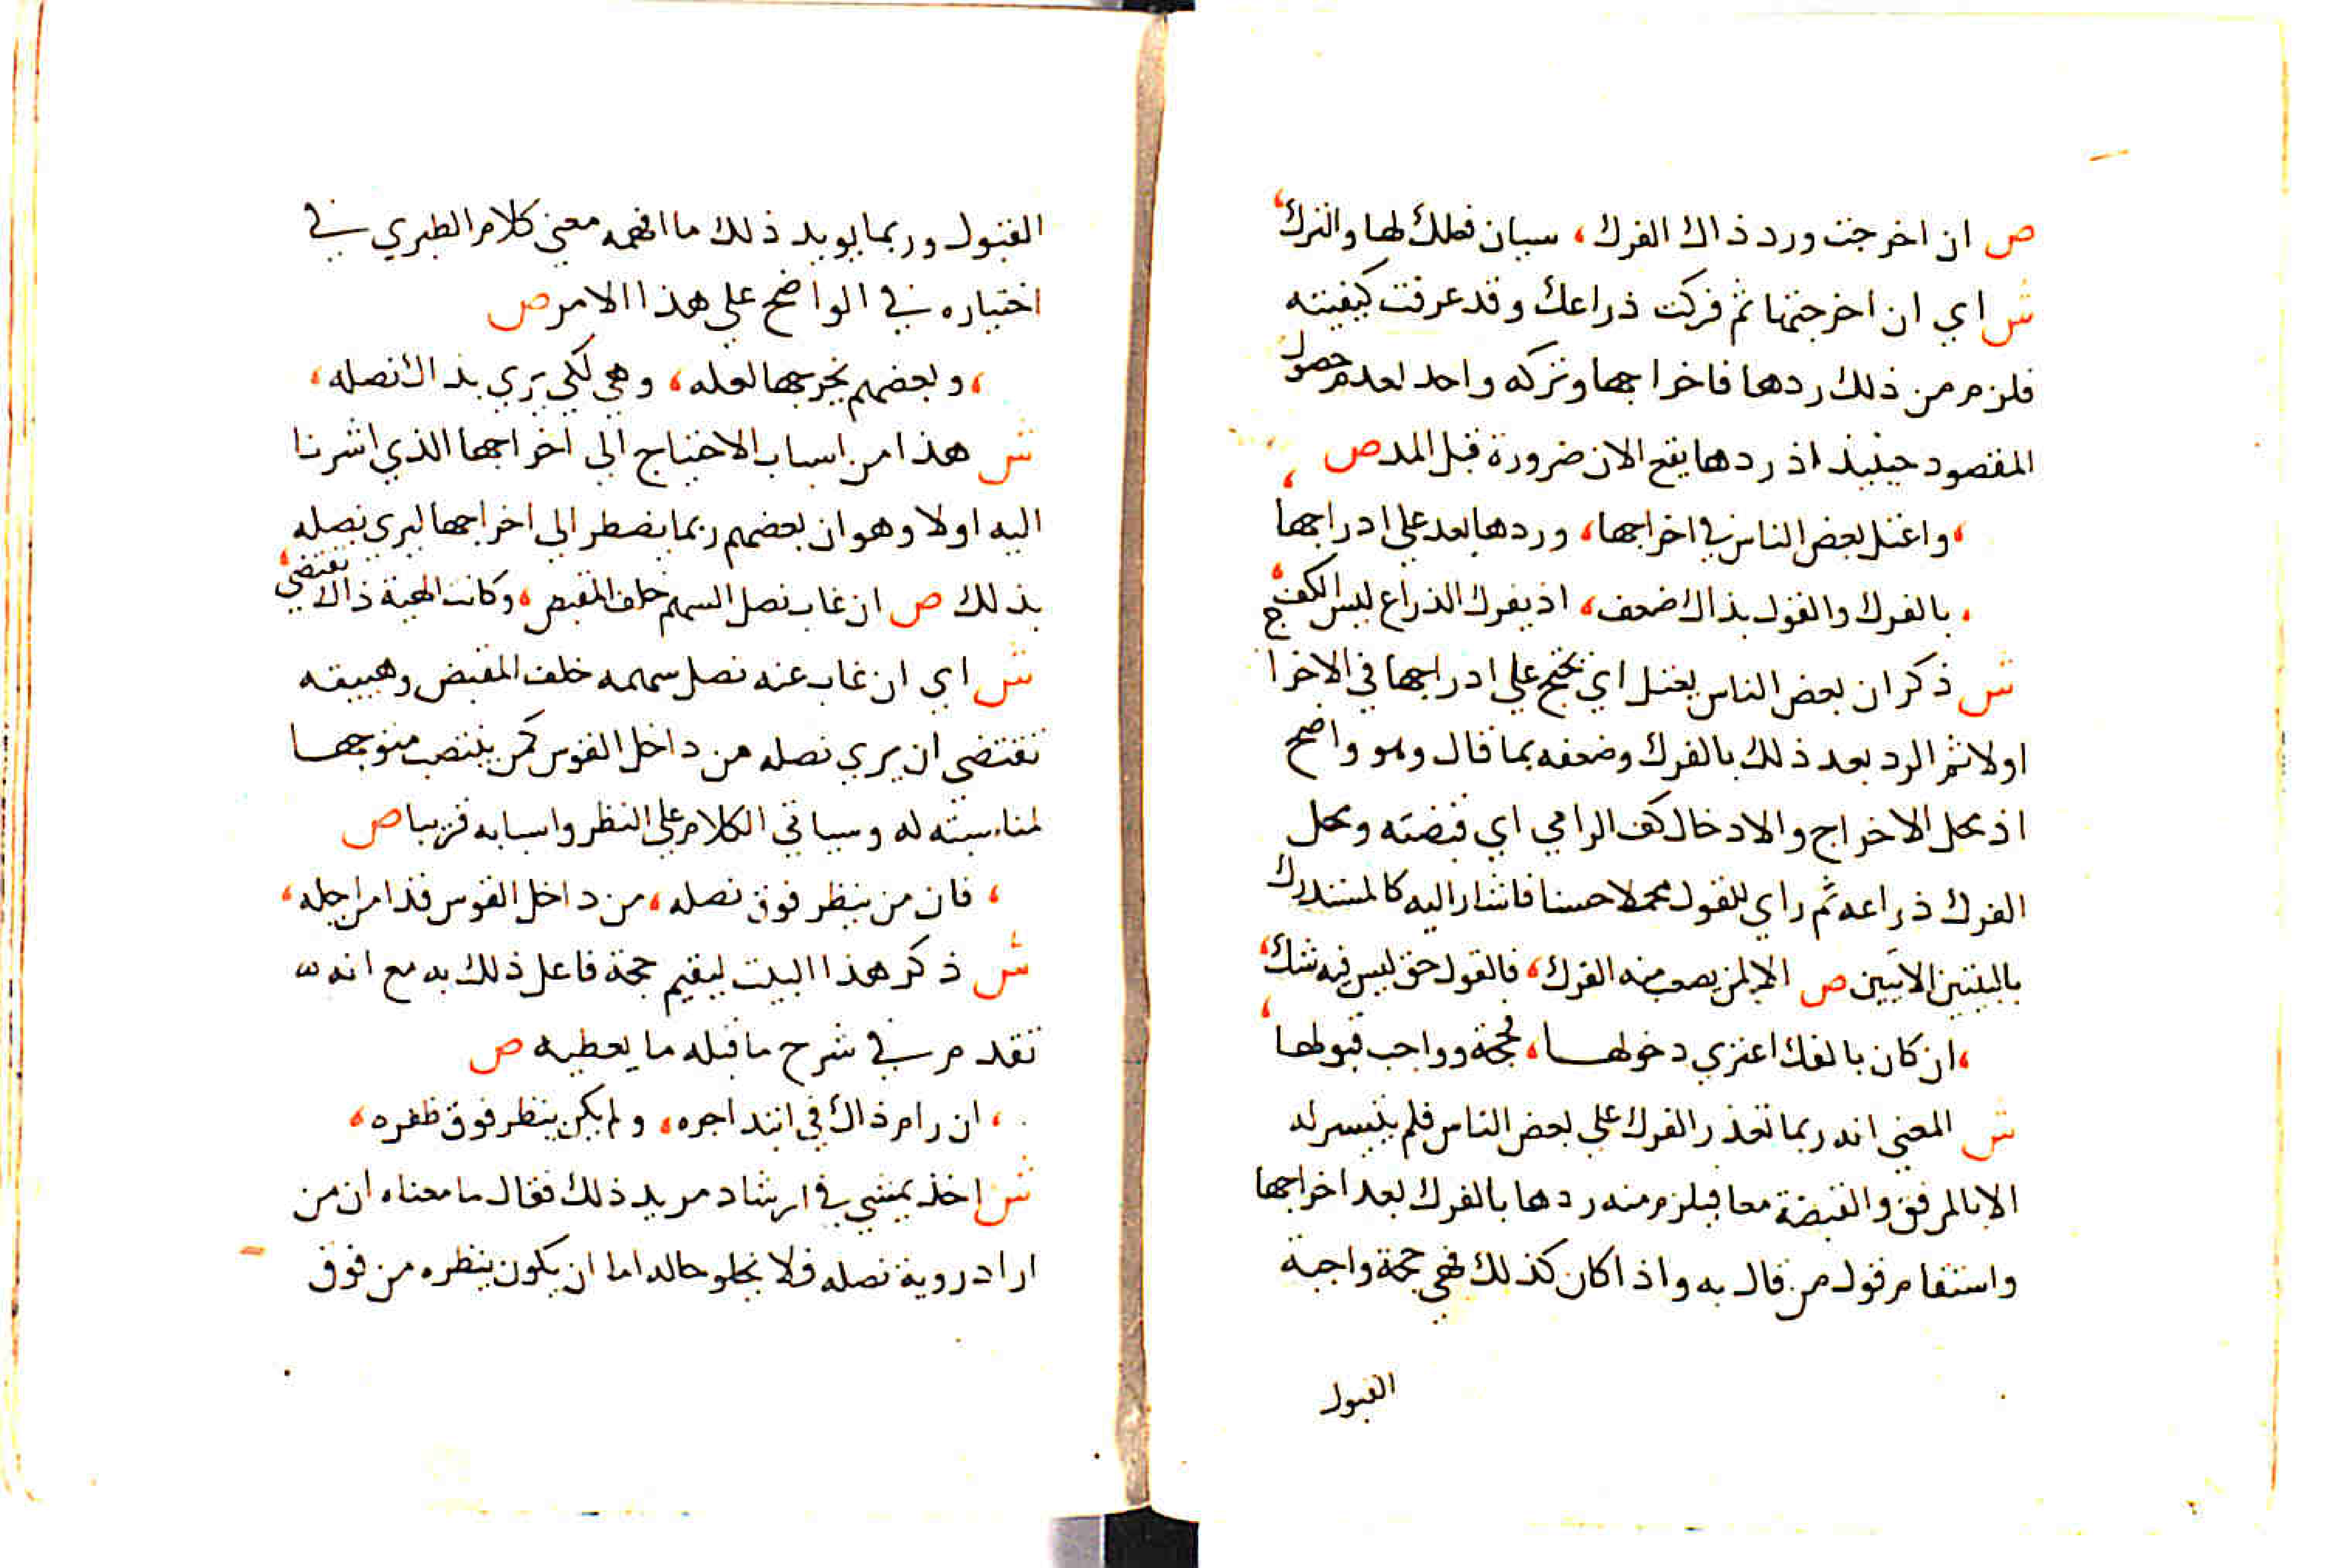 ص ان اخرجت ورد ذاك الفرك، سيان فعلك لها والترك،
ش اي ان اخرجتها ثم فركت ذراعك وقد عرفت كيفيته
فلزم من ذلك ردها فاخراجها وتركه واحد لعدم حصول
المقصود حينيذ اذ ردها يقع الان ضرورة قبل المد ص
، واعتل بعض الناس في اخراجها، وردها بعد علي ادراجها،
، بالفرك والقول بذاك ضعف، اذ يفرك الذراع ليس الكف،
ش ذكر ان بعض الناس يعتل اي يحتج علي ادراجها في الاخراج
اولا ثم الرد بعد ذلك بالفرك وضعفه بما قال وهو واضح
اذ محل الاخراج والادخال كف الرامي اي قبضته ومحل
الفرك ذراعه ثم راي للقول محملا حسنا فاشار اليه كالمستدرك
بالبيتين الاتيين ص الا لمن يصعب منه الفرك، فالقول حق ليس فيه شك،
، ان كان بالفك اعتزي دخولها، فحجة وواجب قبولها،
ش المعني انه ربما تعذر الفرك علي بعض الناس فلم يتيسر له
الا بالمرفق والقبضة معا فيلزم منه ردها بالفرك بعد اخراجها
واستقام قول من قال به واذا كان كذلك فهي حجة واجبة
القبول
القبول وربما يويد ذلك ما افهمه معني كلام الطبري في
اختياره في الواضح علي هذا الامر ص
، وبعضهم يخرجها لعله، وهي لكي يري بذاك نصله،
ش هذا من اسباب الاحتياج الي اخراجها الذي اشرنا
اليه اولا وهو ان بعضهم ربما يضطر الي اخراجها ليري نصله
بذلك ص ان غاب نصل السهم خلف المقبض، وكانت الهية ذاك تقتضي،
ش اي ان غاب عنه نصل سهمه خلف المقبض وهييته
تقتضي ان يري نصله من داخل القوس كمن ينتصب متوجها
لمناسبته له وسياتي الكلام علي النظر واسبابه قريبا ص
، فان من ينظر فوق نصله، من داخل القوس فذا من اجله،
ش ذكر هذا البيت ليقيم حجة فاعل ذلك به مع انه
تقدم في شرح ما قبله ما يعطيه ص
، ان رام ذاك في ابتدا جره، ولم يكن ينظر فوق ظفره،
ش اخذ يمشي في ارشاد مريد ذلك فقال ما معناه ان من
اراد روية نصله فلا يخلو حاله اما ان يكون ينظره من فوق